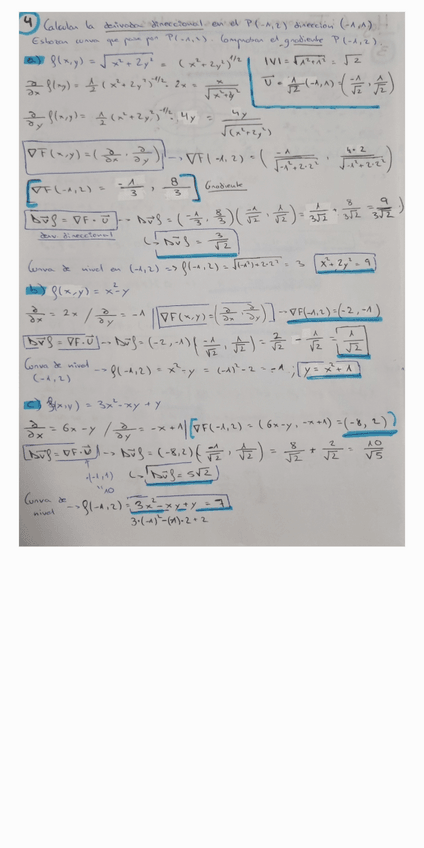 4 Calcular la derivada direccional en el P(-1,2) dirección (-1,1)
Esbozar curva que pase por P(-1,2). Comprobar el gradiente P(-1,2)
a) f(x,y) = √(x²+2y²) = (x²+2y²)^1/2
|V| = √(1²+1²) = √2
∂/∂x f(x,y) = 1/2 (x²+2y²)^-1/2 · 2x = x/√(x²+2y²)
U⃗ = 1/√2 (-1,1) = (-1/√2, 1/√2)
∂/∂y f(x,y) = 1/2 (x²+2y²)^-1/2 · 4y = 4y/√(x²+2y²)
∇F(x,y) = (∂/∂x, ∂/∂y) → ∇F(-1,2) = (-1/√(-1²+2·2²), 4·2/√(-1²+2·2²))
[∇F(-1,2) = -1/3, 8/3] Gradiente
Dv⃗f = ∇F·U⃗ → Dv⃗f = (-1/3, 8/3)(-1/√2, 1/√2) = 1/3√2 + 8/3√2 = 9/3√2
deriv. direccional
↳ Dv⃗f = 3/√2
Curva de nivel en (-1,2) => f(-1,2) = √((-1)²+2·2²) = 3 x²+2y² = 9
b) f(x,y) = x²-y
∂/∂x = 2x / ∂/∂y = -1 | ∇F(x,y) = (∂/∂x, ∂/∂y) → ∇F(-1,2) = (-2,-1)
Dv⃗f = ∇F·U⃗ → Dv⃗f = (-2,-1)(-1/√2, 1/√2) = 2/√2 - 1/√2 = 1/√2
Curva de nivel → f(-1,2) = x²-y = (-1)²-2 = -1 ; y = x²+1
(-1,2)
c) f(x,y) = 3x²-xy+y
∂/∂x = 6x-y / ∂/∂y = -x+1 | [∇F(-1,2) = (6x-y, -x+1) = (-8,2)]
Dv⃗f = ∇F·U⃗ → Dv⃗f = (-8,2)(-1/√2, 1/√2) = 8/√2 + 2/√2 = 10/√5
(-1,1)
↳ Dv⃗f = 5√2
Curva de nivel → f(-1,2) = 3x²-xy+y = 7
3·(-1)²-(-1)·2+2